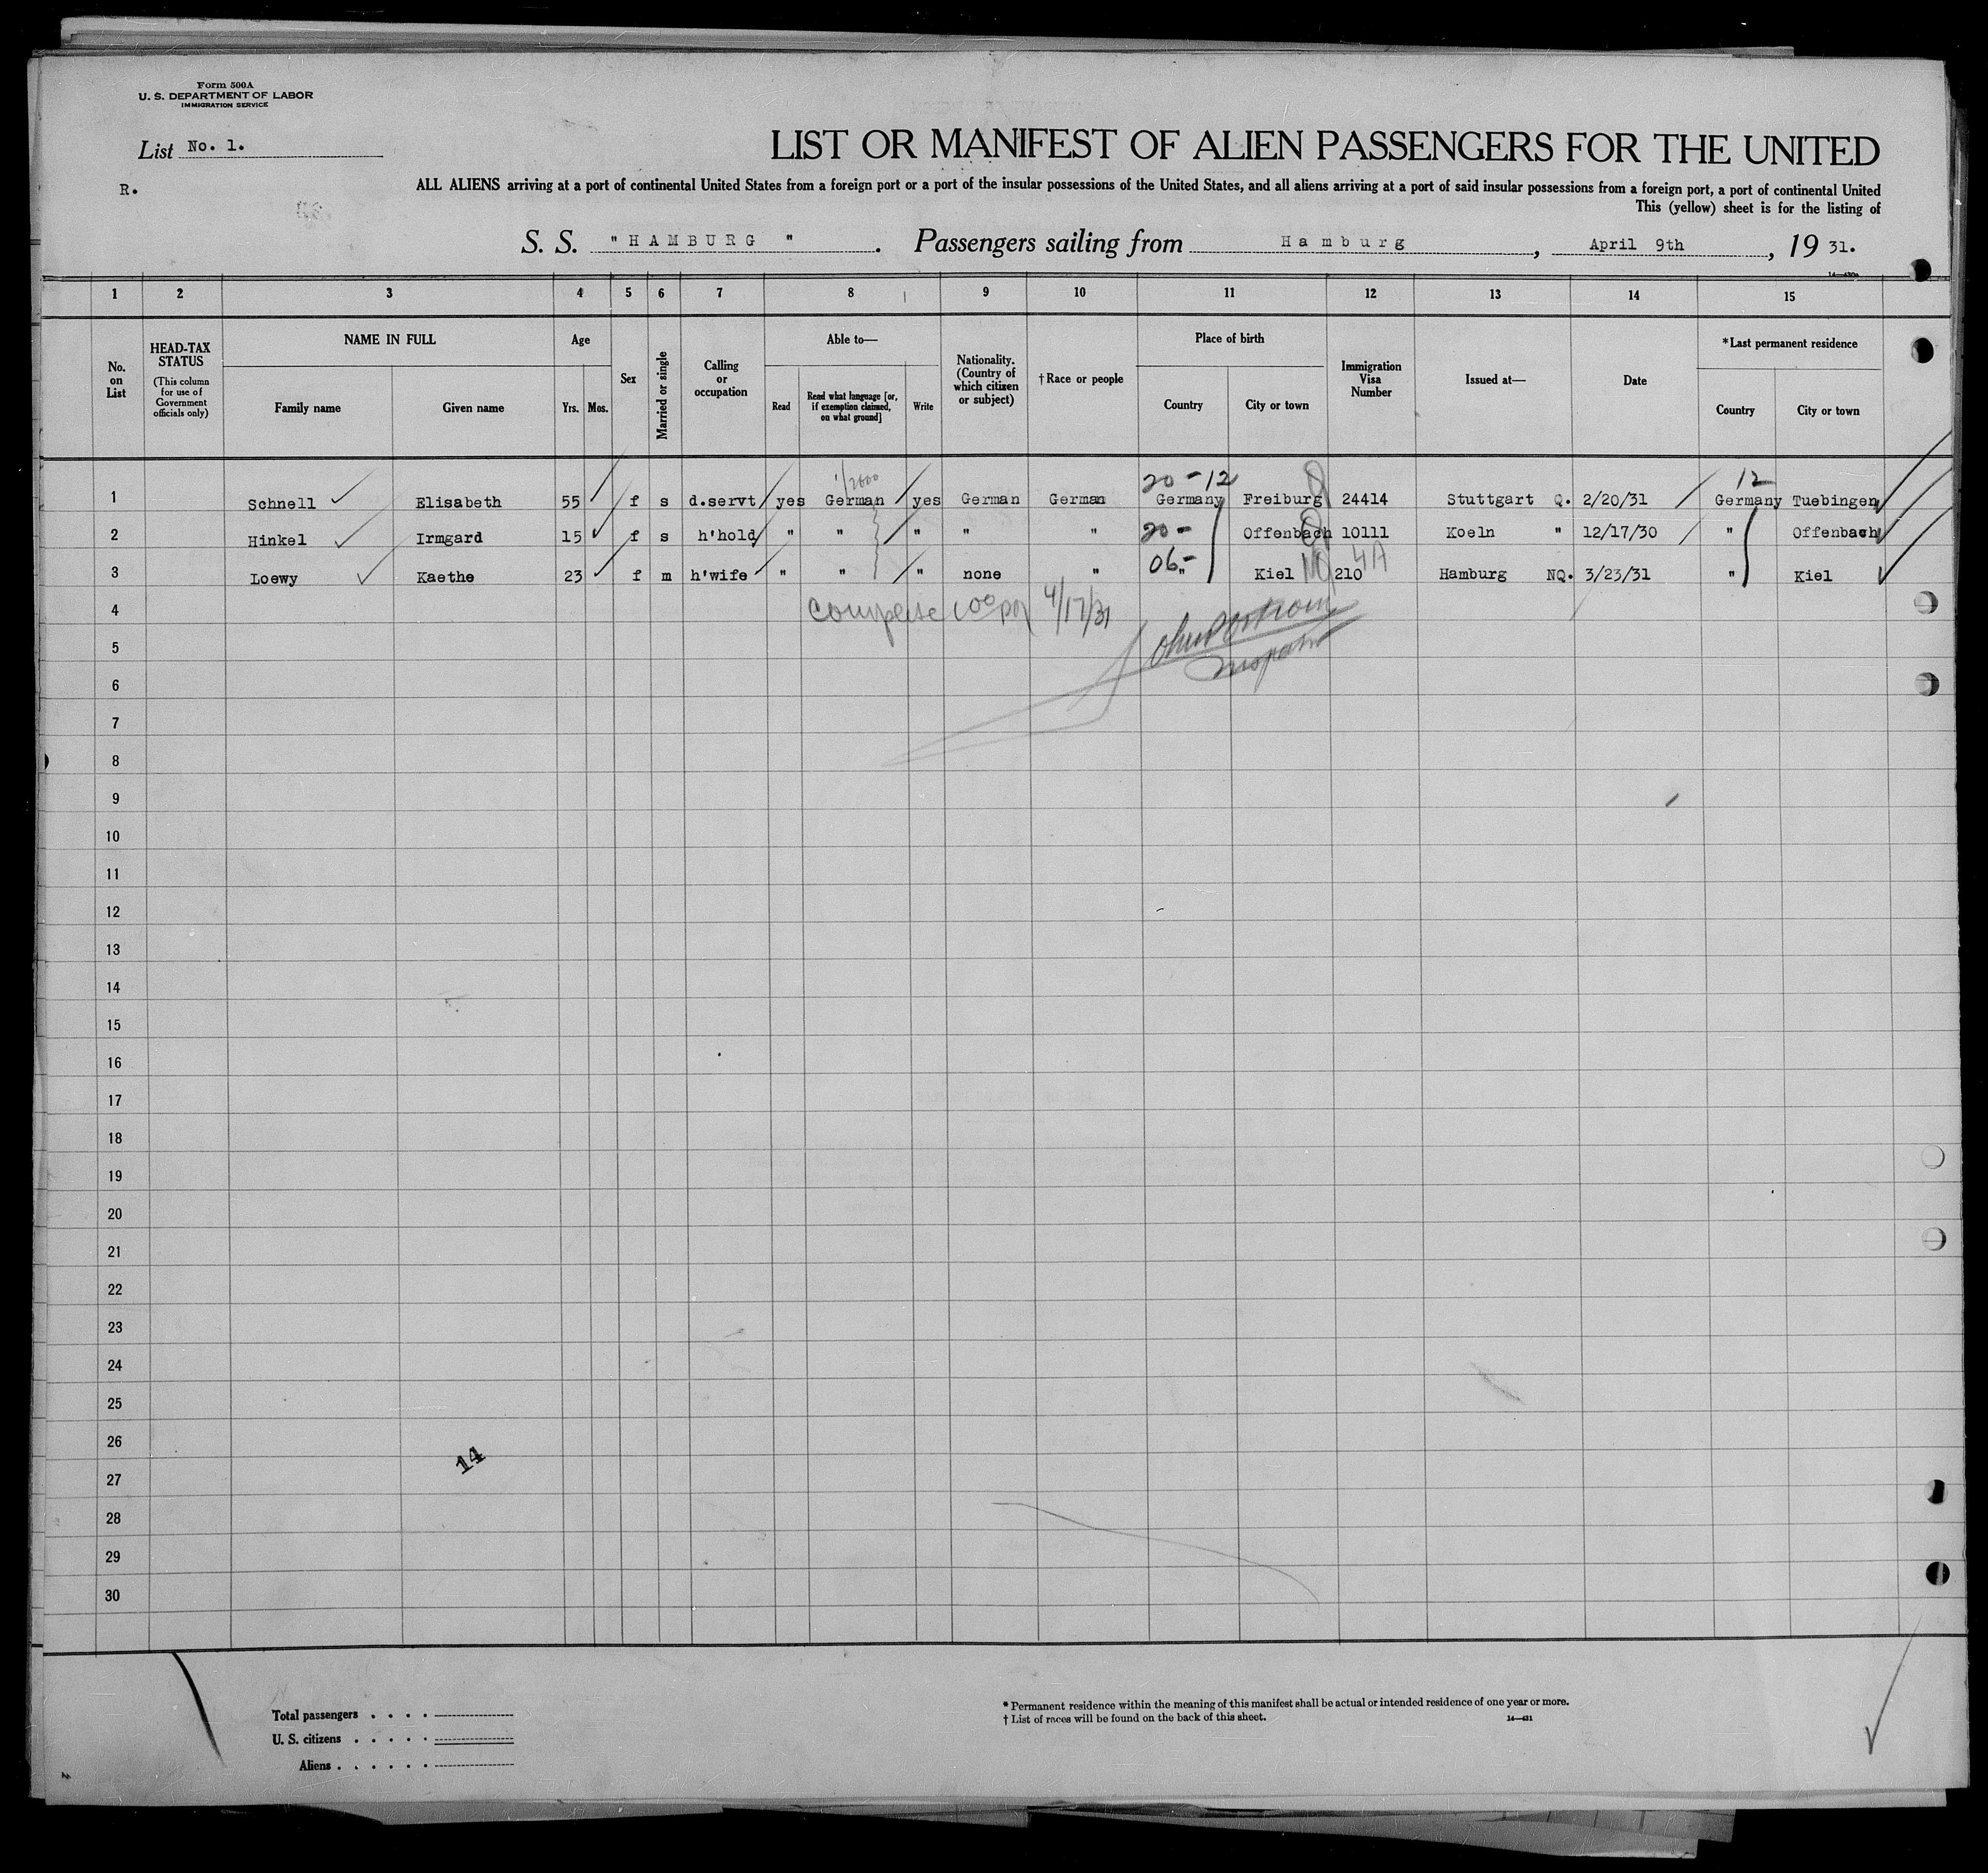 Form 500A
U. S. DEPARTMENT OF LABOR
IMMIGRATION SERVICE
List No. 1.
LIST OR MANIFEST OF ALIEN PASSENGERS FOR THE UNITED
R.
ALL ALIENS arriving at a port of continental United States from a foreign port or a port of the insular possessions of the United States, and all aliens arriving at a port of said insular possessions from a foreign port, a port of continental United
This (yellow) sheet is for the listing of
S. S. " H A M B U R G " . Passengers sailing from H a m b u r g , April 9th , 19 31.
1 2 3 4 5 6 7 8 9 10 11 12 13 14 15
No. on List
HEAD-TAX STATUS
(This column for use of Government officials only)
NAME IN FULL
Family name Given name
Age
Yrs. Mos.
Sex
Married or single
Calling or occupation
Able to—
Read
Read what language [or, if exemption claimed, on what ground]
Write
Nationality. (Country of which citizen or subject)
† Race or people
Place of birth
Country City or town
Immigration Visa Number
Issued at—
Date
* Last permanent residence
Country City or town
20 - 12 12
1 Schnell Elisabeth 55 f s d.servt yes German yes German German Germany Freiburg 24414 Stuttgart Q. 2/20/31 Germany Tuebingen
2 Hinkel Irmgard 15 f s h'hold " " " " " 20- Offenbach 10111 Koeln " 12/17/30 " Offenbach
3 Loewy Kaethe 23 f m h'wife " " " none " 06- " Kiel 210 4A Hamburg NQ. 3/23/31 " Kiel
4 4/17/31
5
6
7
8
9
10
11
12
13
14
15
16
17
18
19
20
21
22
23
24
25
26
14
27
28
29
30
Total passengers . . . .
U. S. citizens . . . . .
Aliens . . . . . .
* Permanent residence within the meaning of this manifest shall be actual or intended residence of one year or more.
† List of races will be found on the back of this sheet. 14—431